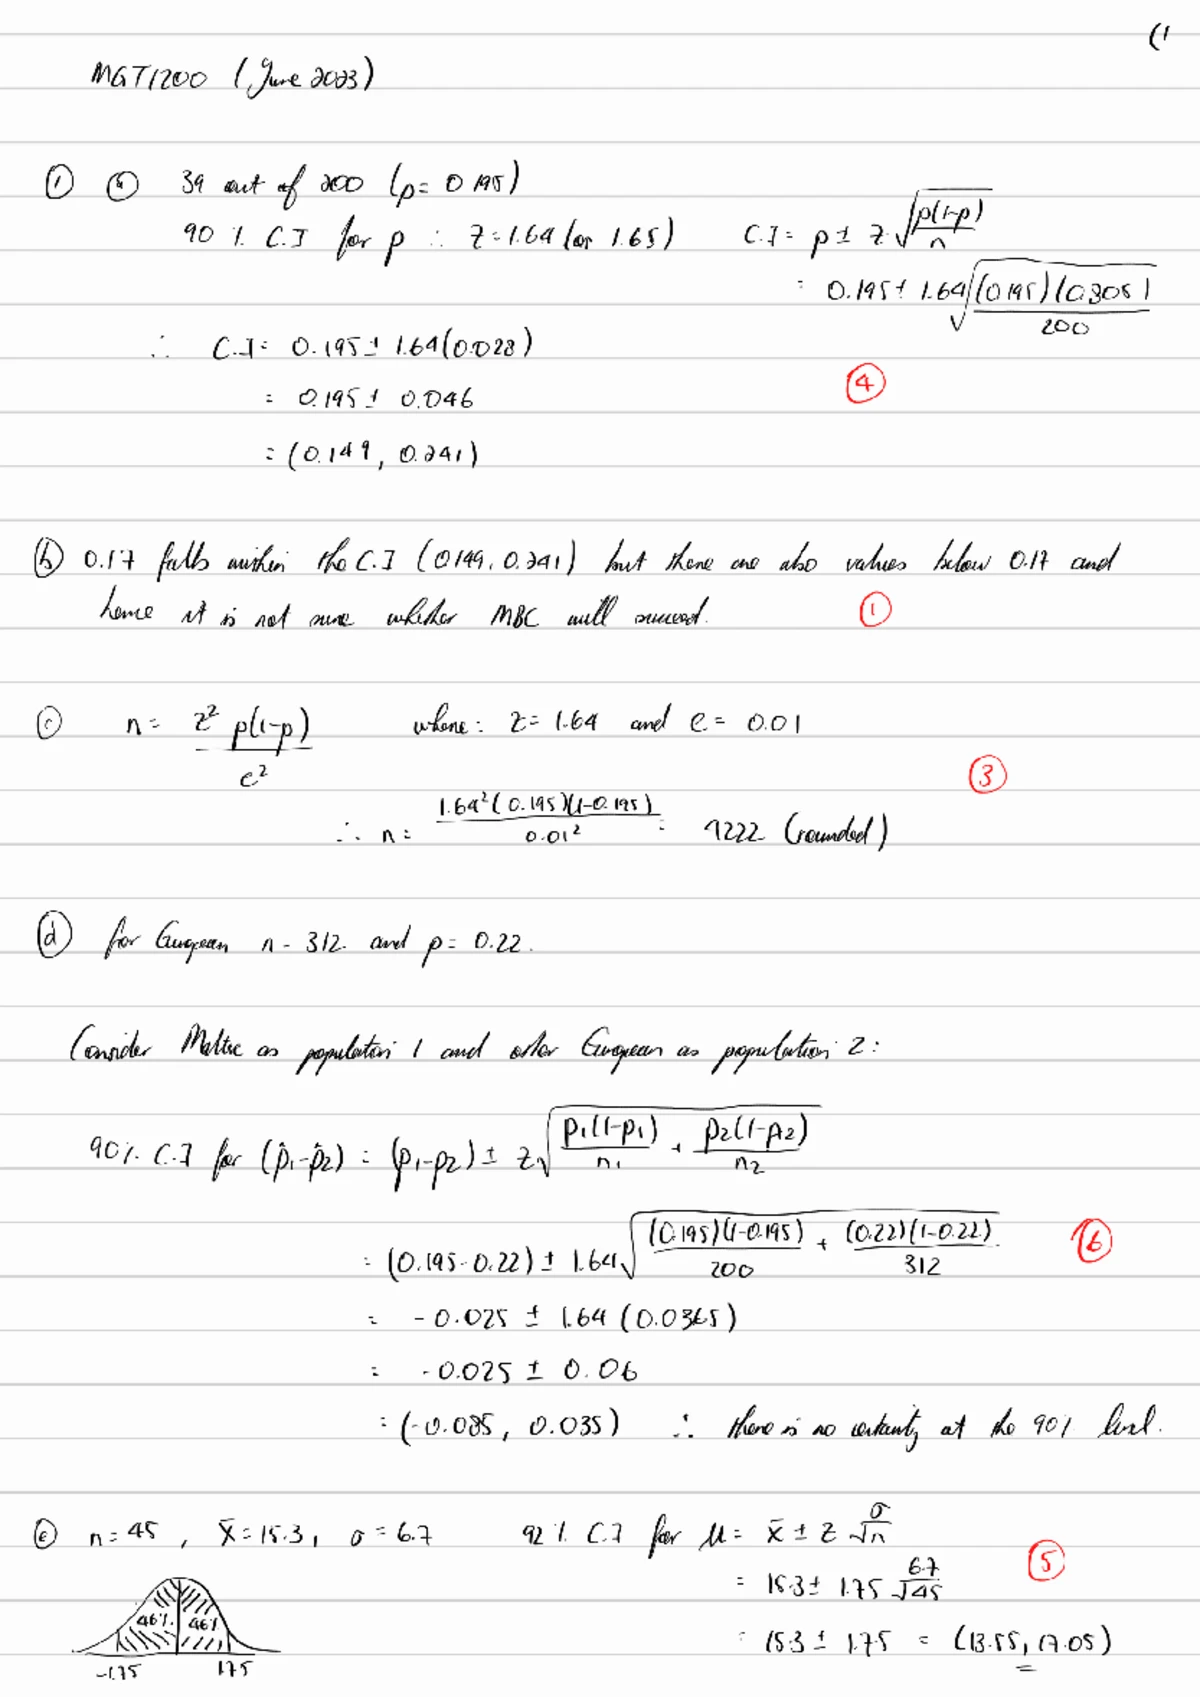 (1
MGT1200 (June 2023)
① ⓐ 39 out of 200 (p= 0.195)
90 % C.I for p ∴ Z=1.64 (or 1.65) C.I= p ± Z √(p(1-p)/n)
= 0.195 ± 1.64 √((0.195)(0.805)/200)
∴ C.I= 0.195 ± 1.64(0.028)
= 0.195 ± 0.046 ④
= (0.149, 0.241)
ⓑ 0.17 falls within the C.I (0.149, 0.241) but there are also values below 0.17 and
hence it is not sure whether MBC will succeed. ①
ⓒ n= Z² p(1-p)/e² where: Z= 1.64 and e= 0.01
③
∴ n= 1.64²(0.195)(1-0.195)/0.01² = 4222 (rounded)
ⓓ for European n= 312 and p= 0.22.
Consider Maltese as population 1 and other European as population 2:
90% C.I for (p̂₁-p̂₂) = (p₁-p₂) ± Z √(p₁(1-p₁)/n₁ + p₂(1-p₂)/n₂)
= (0.195-0.22) ± 1.64 √((0.195)(1-0.195)/200 + (0.22)(1-0.22)/312) ⑥
= -0.025 ± 1.64 (0.0365)
= -0.025 ± 0.06
= (-0.085, 0.035) ∴ there is no certainty at the 90% level.
ⓔ n= 45, x̄=15.3, σ=6.7 92 % C.I for μ= x̄ ± Z σ/√n
= 15.3 ± 1.75 6.7/√45 ⑤
46% 46%
= 15.3 ± 1.75 = (13.55, 17.05)
-1.75 1.75